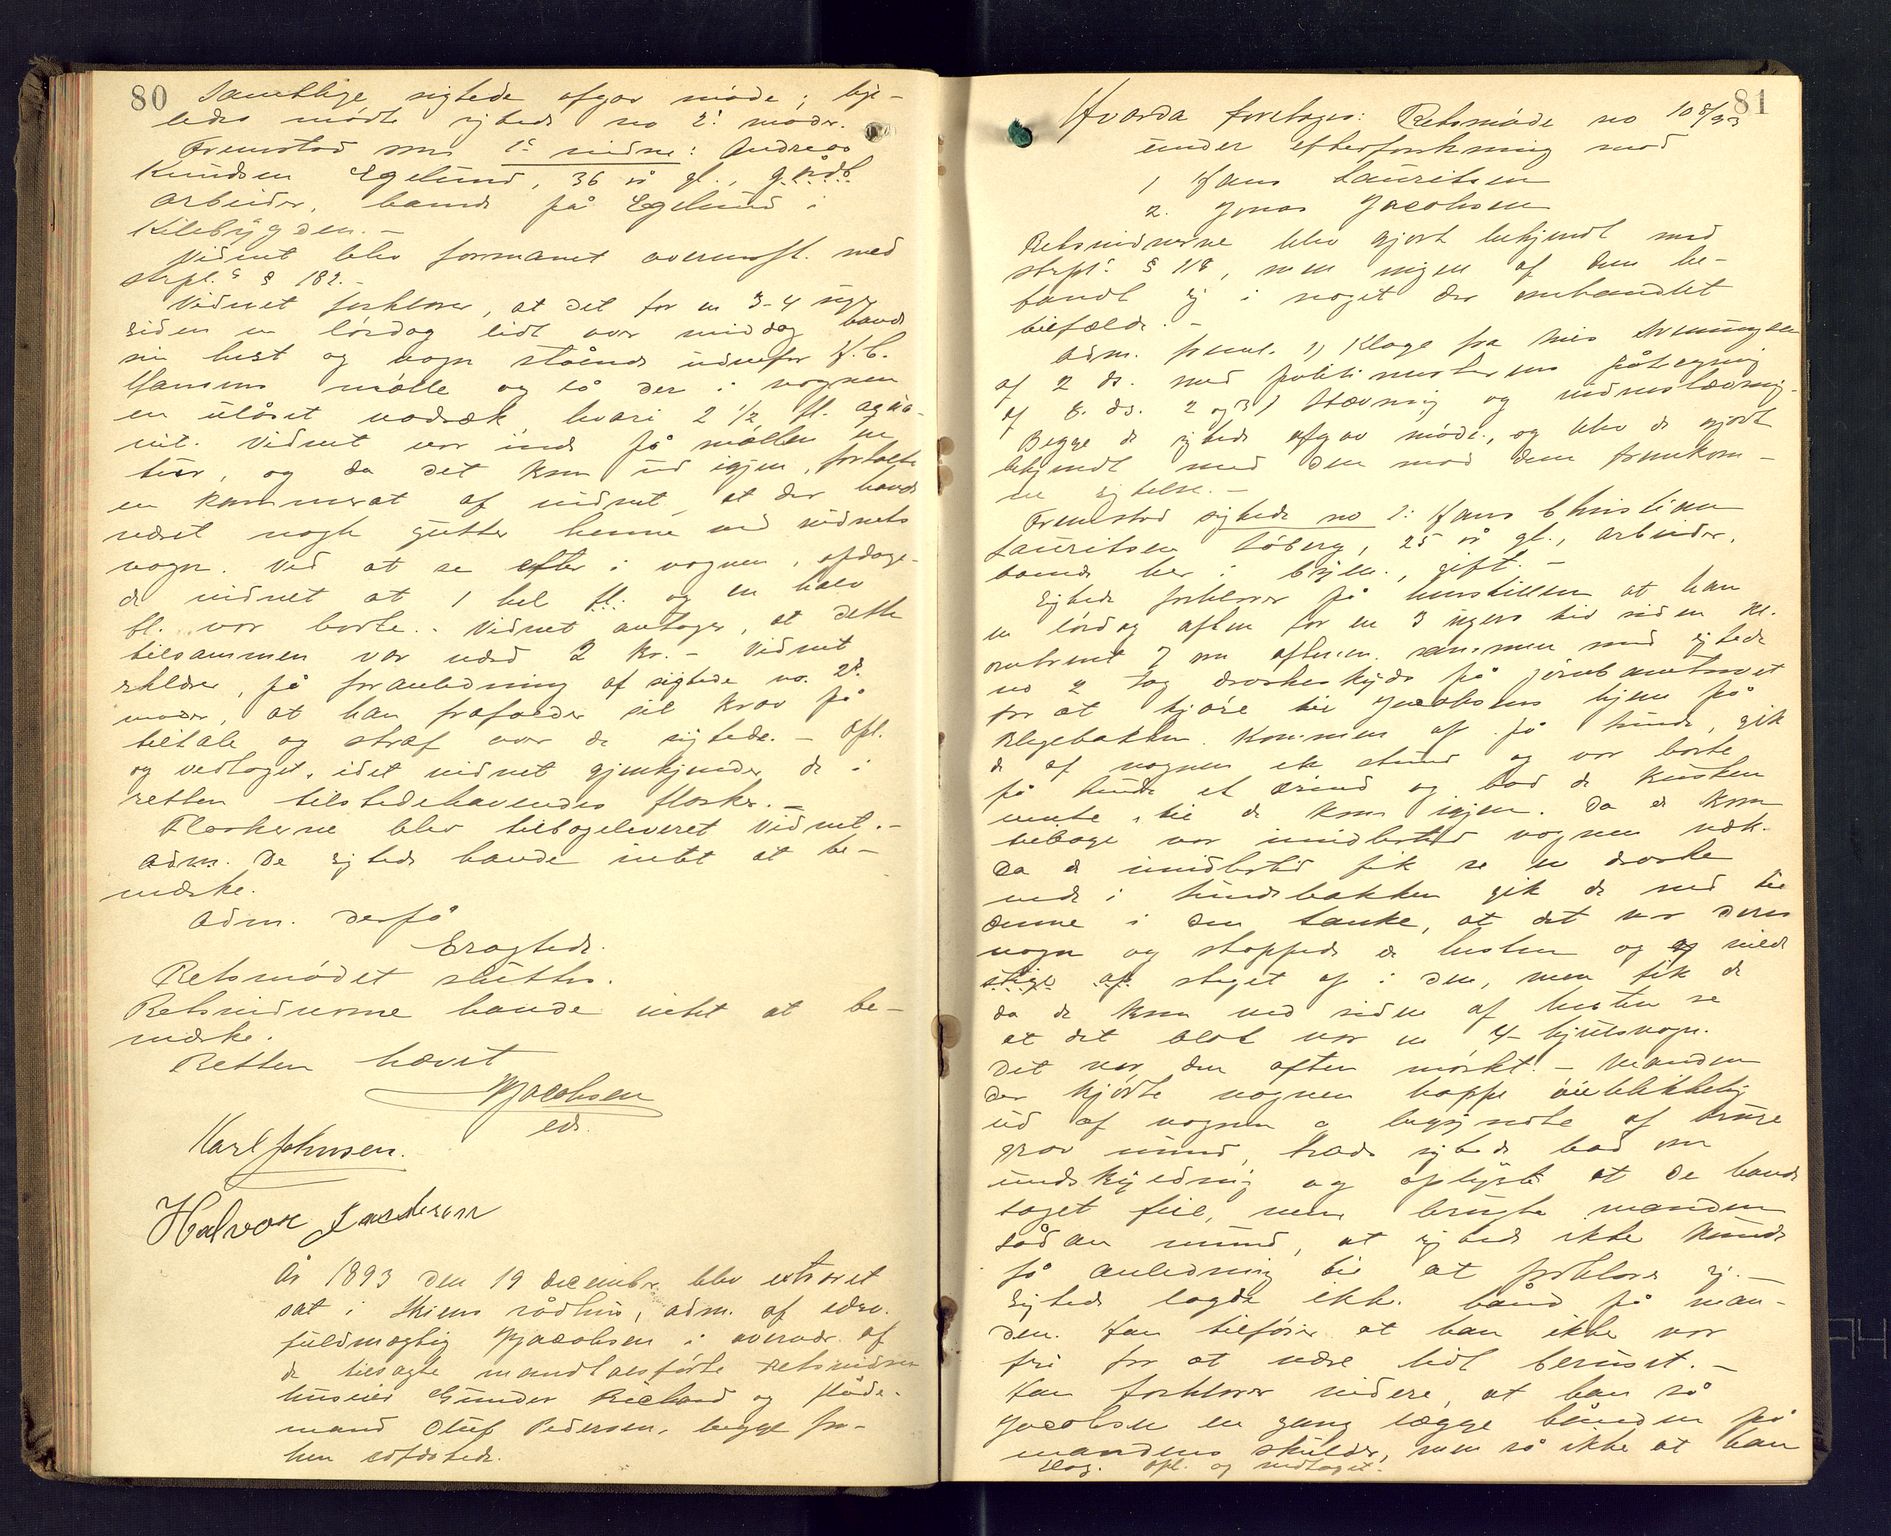 80
Samtlige sigtede afgav møde; lige-
ledes mødte sigtede no 2s moder.
Fremstod som 1ste vidne: Andreas
Knudsen Egelund, 36 år gl., gårdb.
arbeider, bands på Egelund i
Kilebygden. -
Vidnet blev formanet overensst. med
strpl.s § 182. -
Vidnet forklarer, at det for en 3-4 uger
siden en lørdag lidt over middag havde
sin hest og vogn stående udenfor H. C.
Hansens mølle og lå der i vognen
en ulåset vadsæk hvori 2 1/2 fl. aqua-
vit. Vidnet var inde på møllen en
tur, og da det kom ud igjen, fortalte
en kammerat af vidnet, at der havde
været nogle gutter henne ved vidnets
vogn. Ved at se efter i vognen, opdage-
de vidnet at 1 hel fl. og en halv
fl. var borte. - Vidnet antager, at dette
tilsammen var værd 2 kr. - Vidnet
erklærer, på foranledning af sigtede no. 2s
moder, at han frafalder sit krav på
tiltale og straf over de sigtede. - Opl.
og vedtaget, idet vidnet gjenkjender de i
retten tilstedehavendes flasker. -
Flaskerne blev tilbageleveret vidnet. -
Adm. De sigtede havde intet at be-
mærke.
Adm. derpå
Eragtede.
Retsmødet sluttes.
Retsvidnerne havde intet at be-
mærke.
Retten hævet
Jacobsen
eds.
Karl Johnsen.
Halvor
År 1893 den 19 december blev extraret
sat i Skiens rådhus, adm. af edsv.
fuldmægtig Jacobsen i overvær af
de tilsagte mandtalsførte retsvidner
huseier Gunder og fløde-
mand Oluf Pedersen, begge fra-
hen edfæstede.
81
Hvorda foretages: Retsmøde no 108/93
under efterforskning mod
1 Hans Lauritsen
2. Jonas Jacobsen
Retsvidnerne blev gjort bekjendt med
strpl.s § 118, men ingen af dem be-
fandt sig i noget der omhandlet
tilfælde. -
Adm. freml. 1) Klage fra Nils Svenungsen
af 2 ds. med politimesterens påtegning
af 8. ds. 2 og 3) Stævning og vidnestævning.
Begge de sigtede afgav møde, og blev de gjort
bekjendt med den mod dem fremkom-
ne sigtelse. -
Fremstod sigtede no 1: Hans Christian
Lauritsen Løberg, 25 år gl., arbeider,
boende her i byen, gift. -
Sigtede forklarer på henstillen at han
en lørdag aften for en 3 ugers tid siden kl.
omtrent 7 om aftenen sammen med sigtede
no 2 tog droskeskyds på jernbanetorvet
for at kjøre til Jacobsens hjem på
Blegebakken. Kommen op på Lunde, gik
de af vognen en stund og var borte
på Lunde et ærind og bad de kusken
vente, til de kom igjen. Da de kom
tilbage var imidlertid vognen væk.
Da de imidlertid fik se en droske
nede i Lundebakken gik de ned til
denne i den tanke, at det var deres
vogn og stoppede de hesten og og vilde
stige op steget op i den, men fik de
da de kom ved siden af hesten se
at det blot var en 4-hjulsvogn.
Det var den aften mørkt. - Manden
der kjørte vognen hoppe øieblikkelig
ud af vognen og begyndte af bruge
grov mund, trods sigtede bad om
undskyldning og oplyste at de havde
taget feil, men brugte manden
sådan mund, at sigtede ikke kunde
få anledning til at forklare sig. -
Sigtede lagde ikke hånd på man-
den. Han tilføier at han ikke var
fri for at være lidt beruset. -
Han forklarer videre, at han så
Jacobsen en gang lægge hånden på
mandens skulder, men så ikke at han
slog. Opl. og vedtaget.